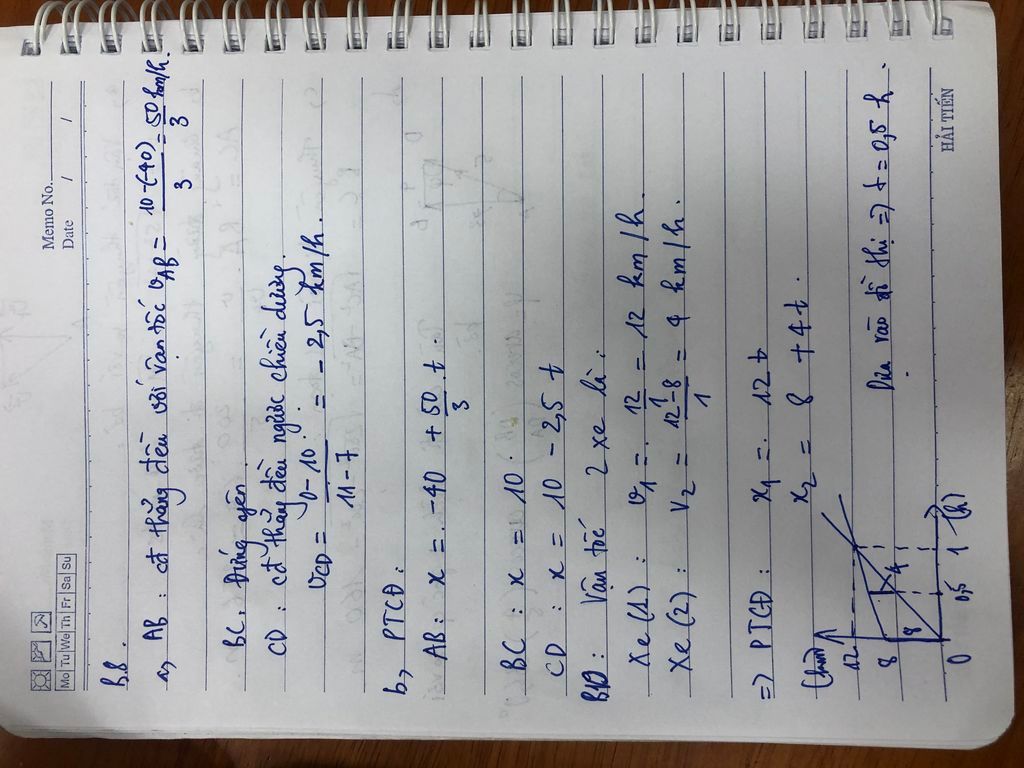 Memo No.
Mo Tu We Th Fr Sa Su
Date / /
B.8.
a, AB : cđ thẳng đều với vận tốc v_AB = 10-(-40)/3 = 50/3 km/h.
BC. Đứng yên
CD : cđ thẳng đều ngược chiều dương.
v_CD = 0-10/11-7 = -2,5 km/h.
b, PTCĐ :
AB : x = -40 + 50/3 t.
BC : x = 10.
CD : x = 10 - 2,5 t
B10 : Vận tốc 2 xe là :
Xe (1) : v₁ = 12/1 = 12 km/h.
Xe (2) : v₂ = 12-8/1 = 4 km/h.
=> PTCĐ : x₁ = 12 t
x₂ = 8 + 4t.
12
8
8
4
0 0,5 1 (h)
Dựa vào đồ thị => t = 0,5 h.
HẢI TIẾN